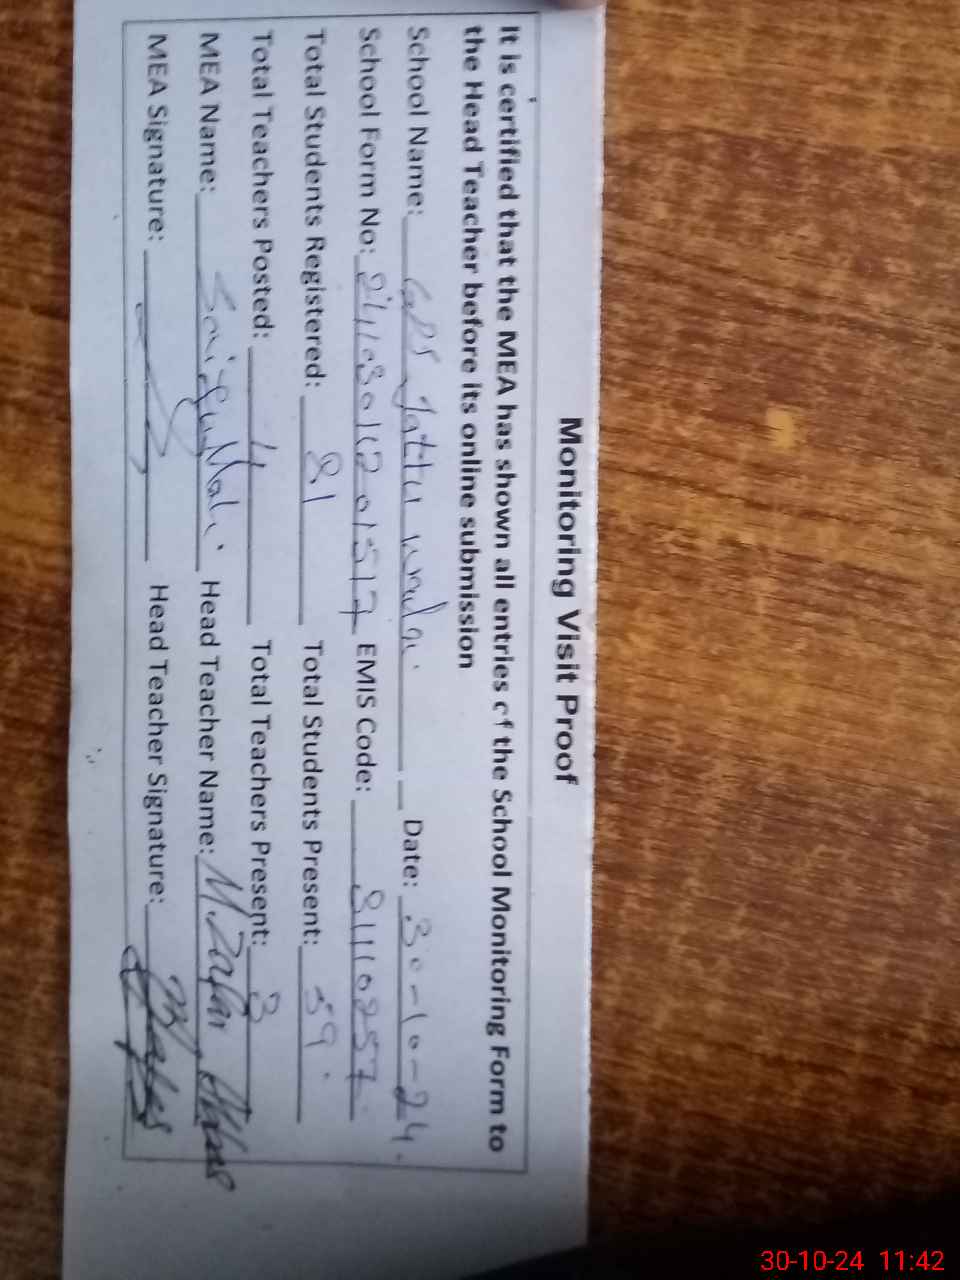 Monitoring Visit Proof
It is certified that the MEA has shown all entries of the School Monitoring Form to
the Head Teacher before its online submission
School Name: GPS Jattu wala Date: 30-10-24
School Form No: EMIS Code: 31110257
Total Students Registered: 81 Total Students Present: 59
Total Teachers Posted: 4 Total Teachers Present: 3
MEA Name: Head Teacher Name: M. Zafar Abbas
MEA Signature: Head Teacher Signature:
30-10-24 11:42